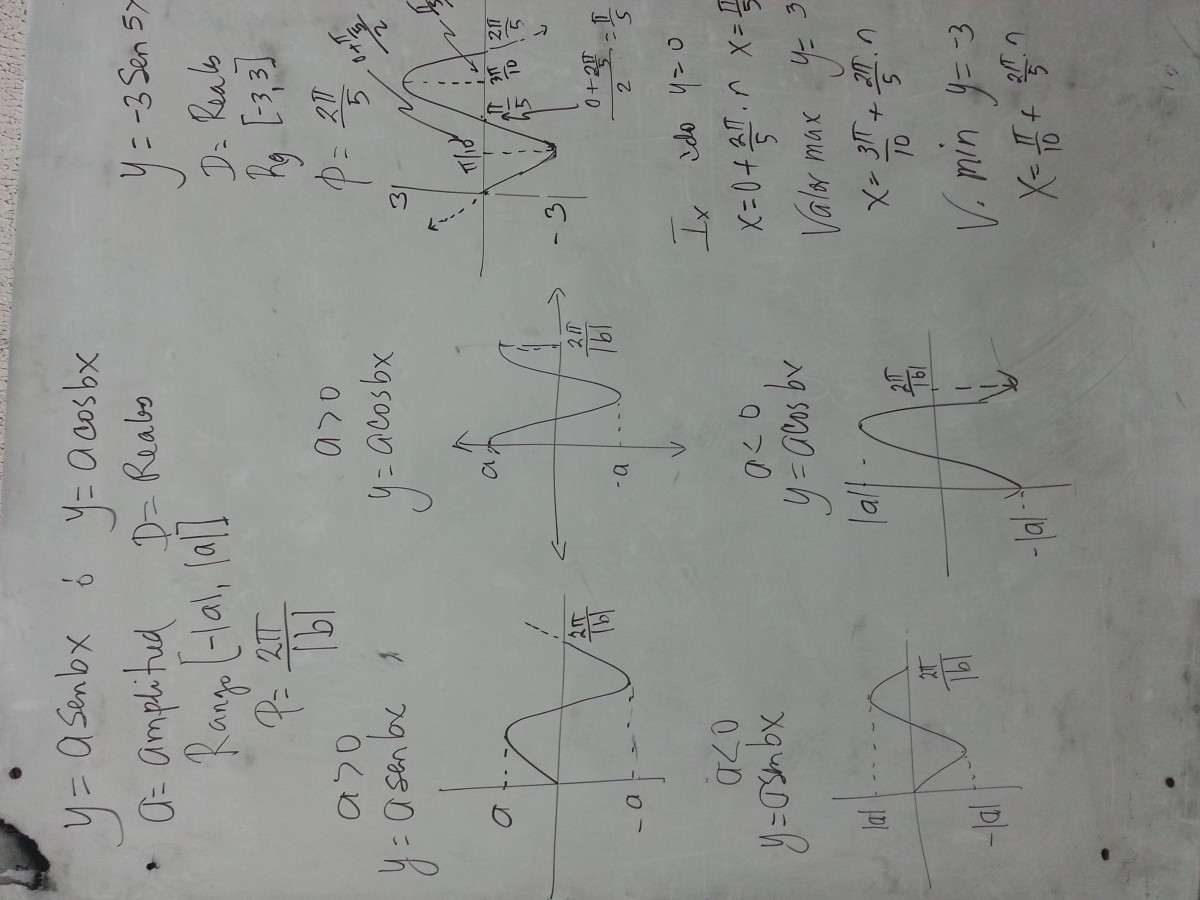 y = a senbx ó y = a cosbx
a = amplitud D = Reales
Rango [-|a|, |a|]
P = 2π/|b|
a > 0
y = a senbx
a
-a
2π/|b|
a > 0
y = a cosbx
a
-a
2π/|b|
a < 0
y = a senbx
|a|
-|a|
2π/|b|
a < 0
y = a cosbx
|a|
-|a|
2π/|b|
y = -3 Sen 5x
D = Reales
Rg [-3,3]
P = 2π/5
3
-3
π/10
π/5
3π/10
2π/5
(0 + 2π/5)/2 = π/5
Ix cdo y = 0
x = 0 + 2π/5 · n x = π/5
Valor max y = 3
x = 3π/10 + 2π/5 · n
V. min y = -3
x = π/10 + 2π/5 · n